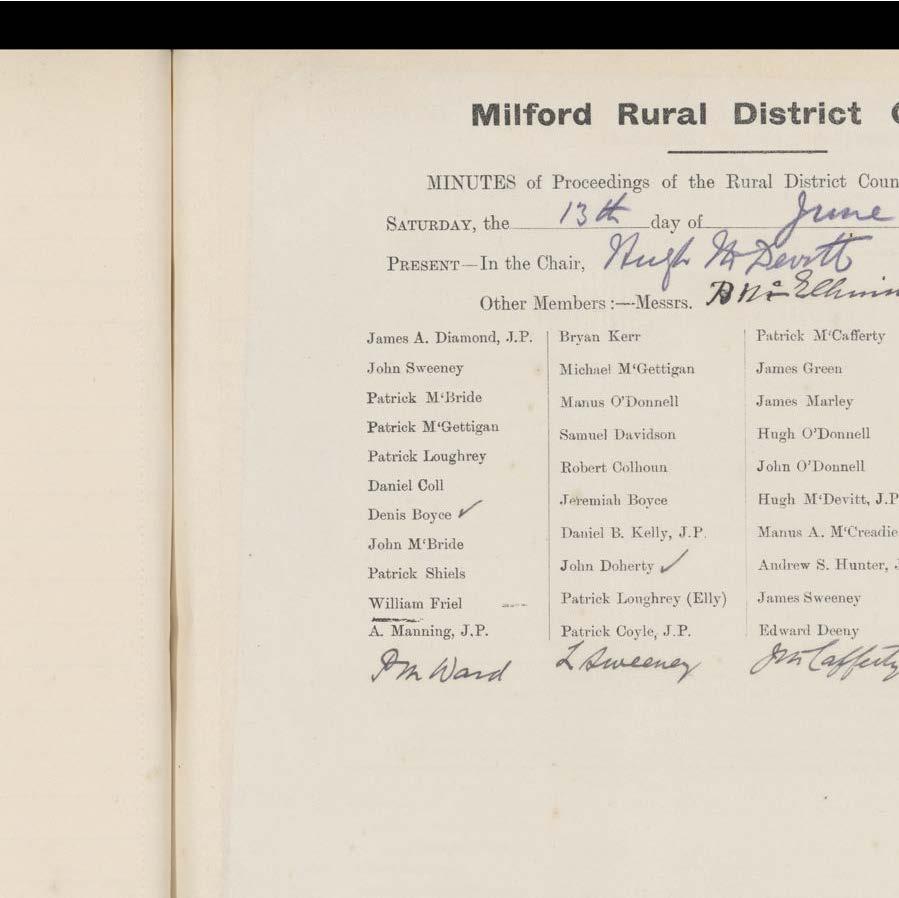 Milford Rural District
MINUTES of Proceedings of the Rural District Coun
SATURDAY, the 13th day of June
PRESENT—In the Chair, Hugh McDevitt
Other Members :—Messrs.
James A. Diamond, J.P.
John Sweeney
Patrick M‘Bride
Patrick M‘Gettigan
Patrick Loughrey
Daniel Coll
Denis Boyce ✓
John M‘Bride
Patrick Shiels
William Friel
A. Manning, J.P.
Bryan Kerr
Michael M‘Gettigan
Manus O’Donnell
Samuel Davidson
Robert Colhoun
Jeremiah Boyce
Daniel B. Kelly, J.P.
John Doherty ✓
Patrick Loughrey (Elly)
Patrick Coyle, J.P.
Patrick M‘Cafferty
James Green
James Marley
Hugh O’Donnell
John O’Donnell
Hugh M‘Devitt, J.P
Manus A. M‘Creadie
Andrew S. Hunter,
James Sweeney
Edward Deeny
Ward
Sweeney
McCafferty